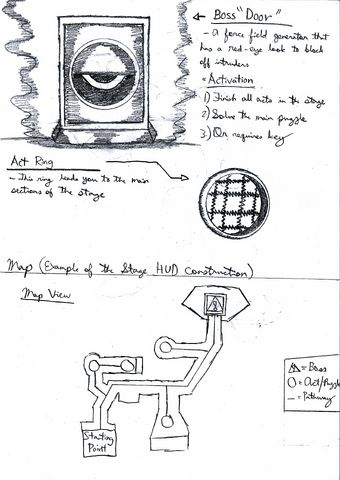 Boss "Door"
- A force field generator that
has a red-eye look to block
off intruders
Activation
1) Finish all acts in the stage
2) Solve the main puzzle
3.) Or requires key
Act Ring
- This ring leads you to the main
sections of the stage
Map (Example of the Stage HUD Construction)
Map View
= Boss
= Act/Puzzle
= Pathway
Starting
Point